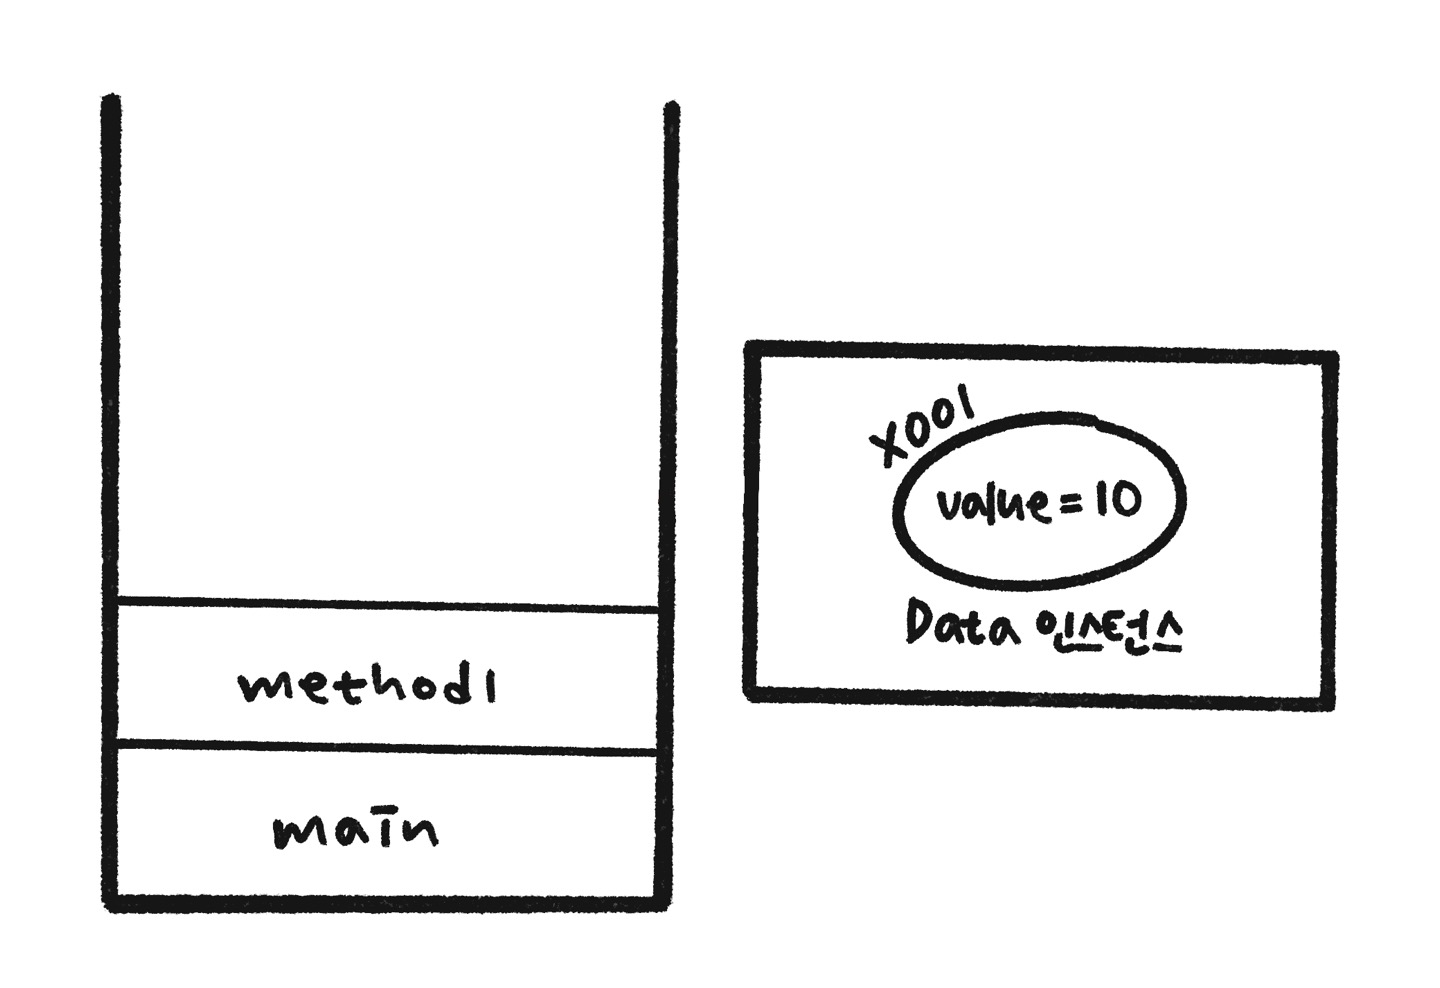 method1
main
x001
value = 10
Data 인스턴스